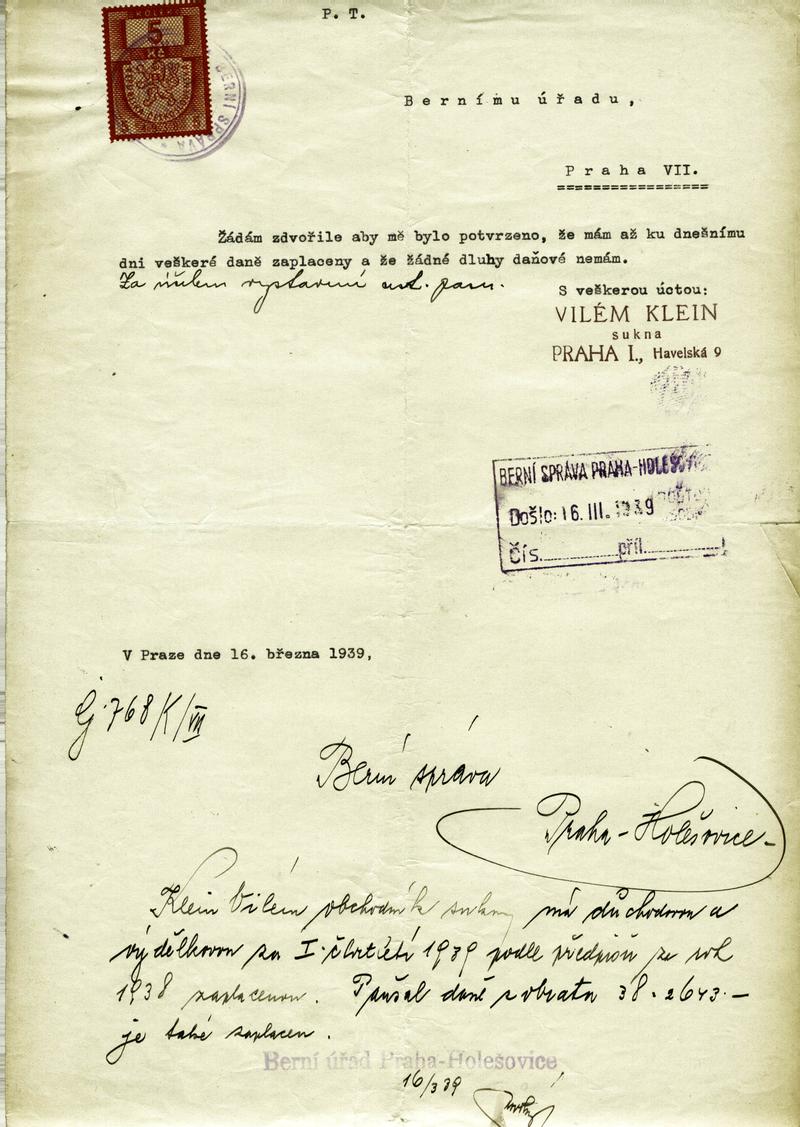 P. T.
KOLEK
5
Kč
BERNÍ SPRÁVA
Bernímu úřadu,
Praha VII.
Žádám zdvořile aby mě bylo potvrzeno, že mám až ku dnešnímu
dni veškeré daně zaplaceny a že žádné dluhy daňové nemám.
Za účelem vystavení pasu.
S veškerou úctou:
VILÉM KLEIN
sukna
PRAHA I., Havelská 9
BERNÍ SPRÁVA PRAHA-HOLEŠOVICE
Došlo: 16. III. 1939
Čís. příl.
V Praze dne 16. března 1939,
Čj. 768/K/VII
Berní správa
Praha-Holešovice-
Klein Vilém obchodník sukny má důchodovou a
výdělkovou za I. čtvrtletí 1939 podle předpisů ze rok
1938 zaplacenou. Paušál daně z obratu 38 . 2643.-
je také zaplacen.
Berní úřad Praha-Holešovice
16/3 39